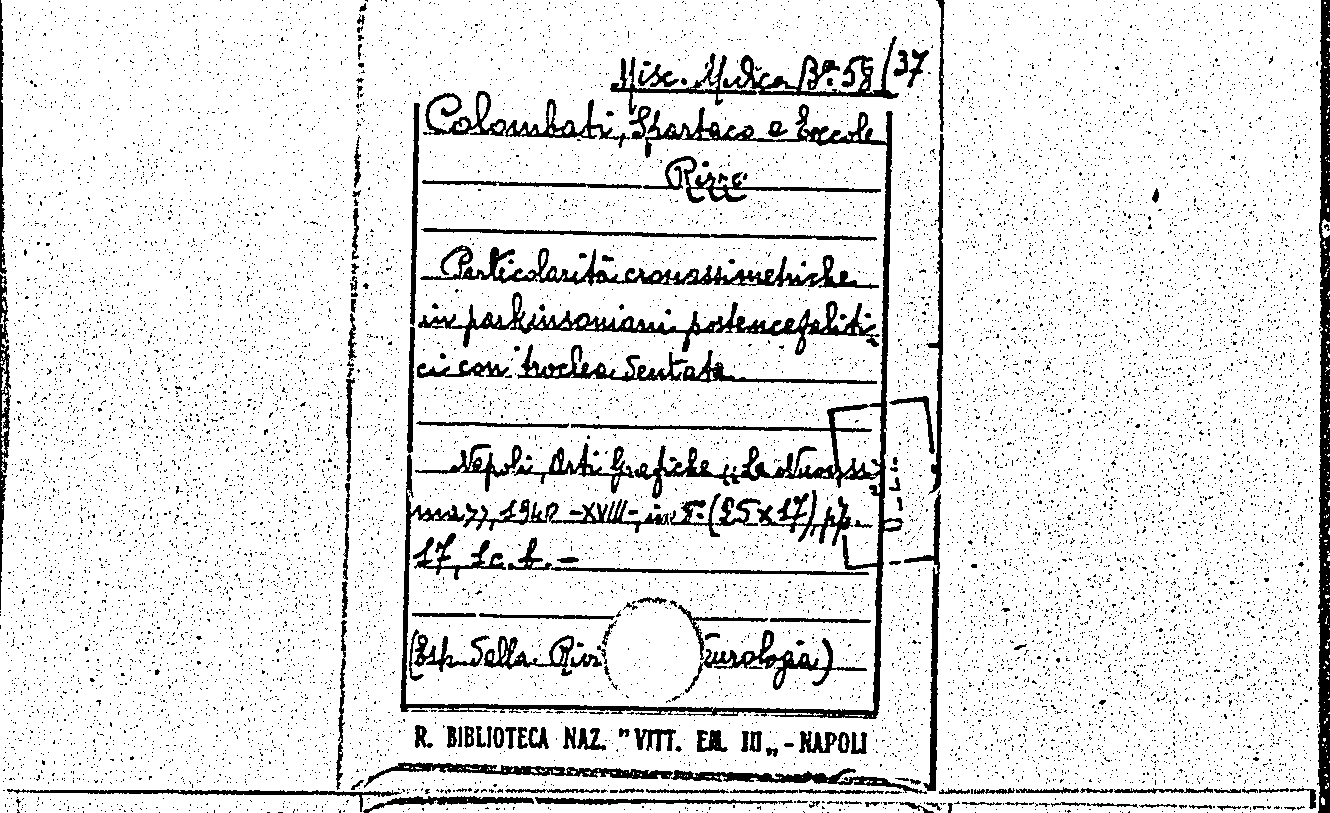 Misc. Medica Bª. 58/37
Colombati, Spartaco e Ercole
Rizzo
Particolarità cronassimetriche
in parkinsoniani postencefaliti
ci con troclea dentata.
Napoli, Arti Grafiche „La Nuovissi
ma», 1940 -XVIII-, in 8° (25x17), pp.
17, 1 c. b. -
(Esp. dalla Riv eurologia)
R. BIBLIOTECA NAZ. "VITT. EM. III„ - NAPOLI